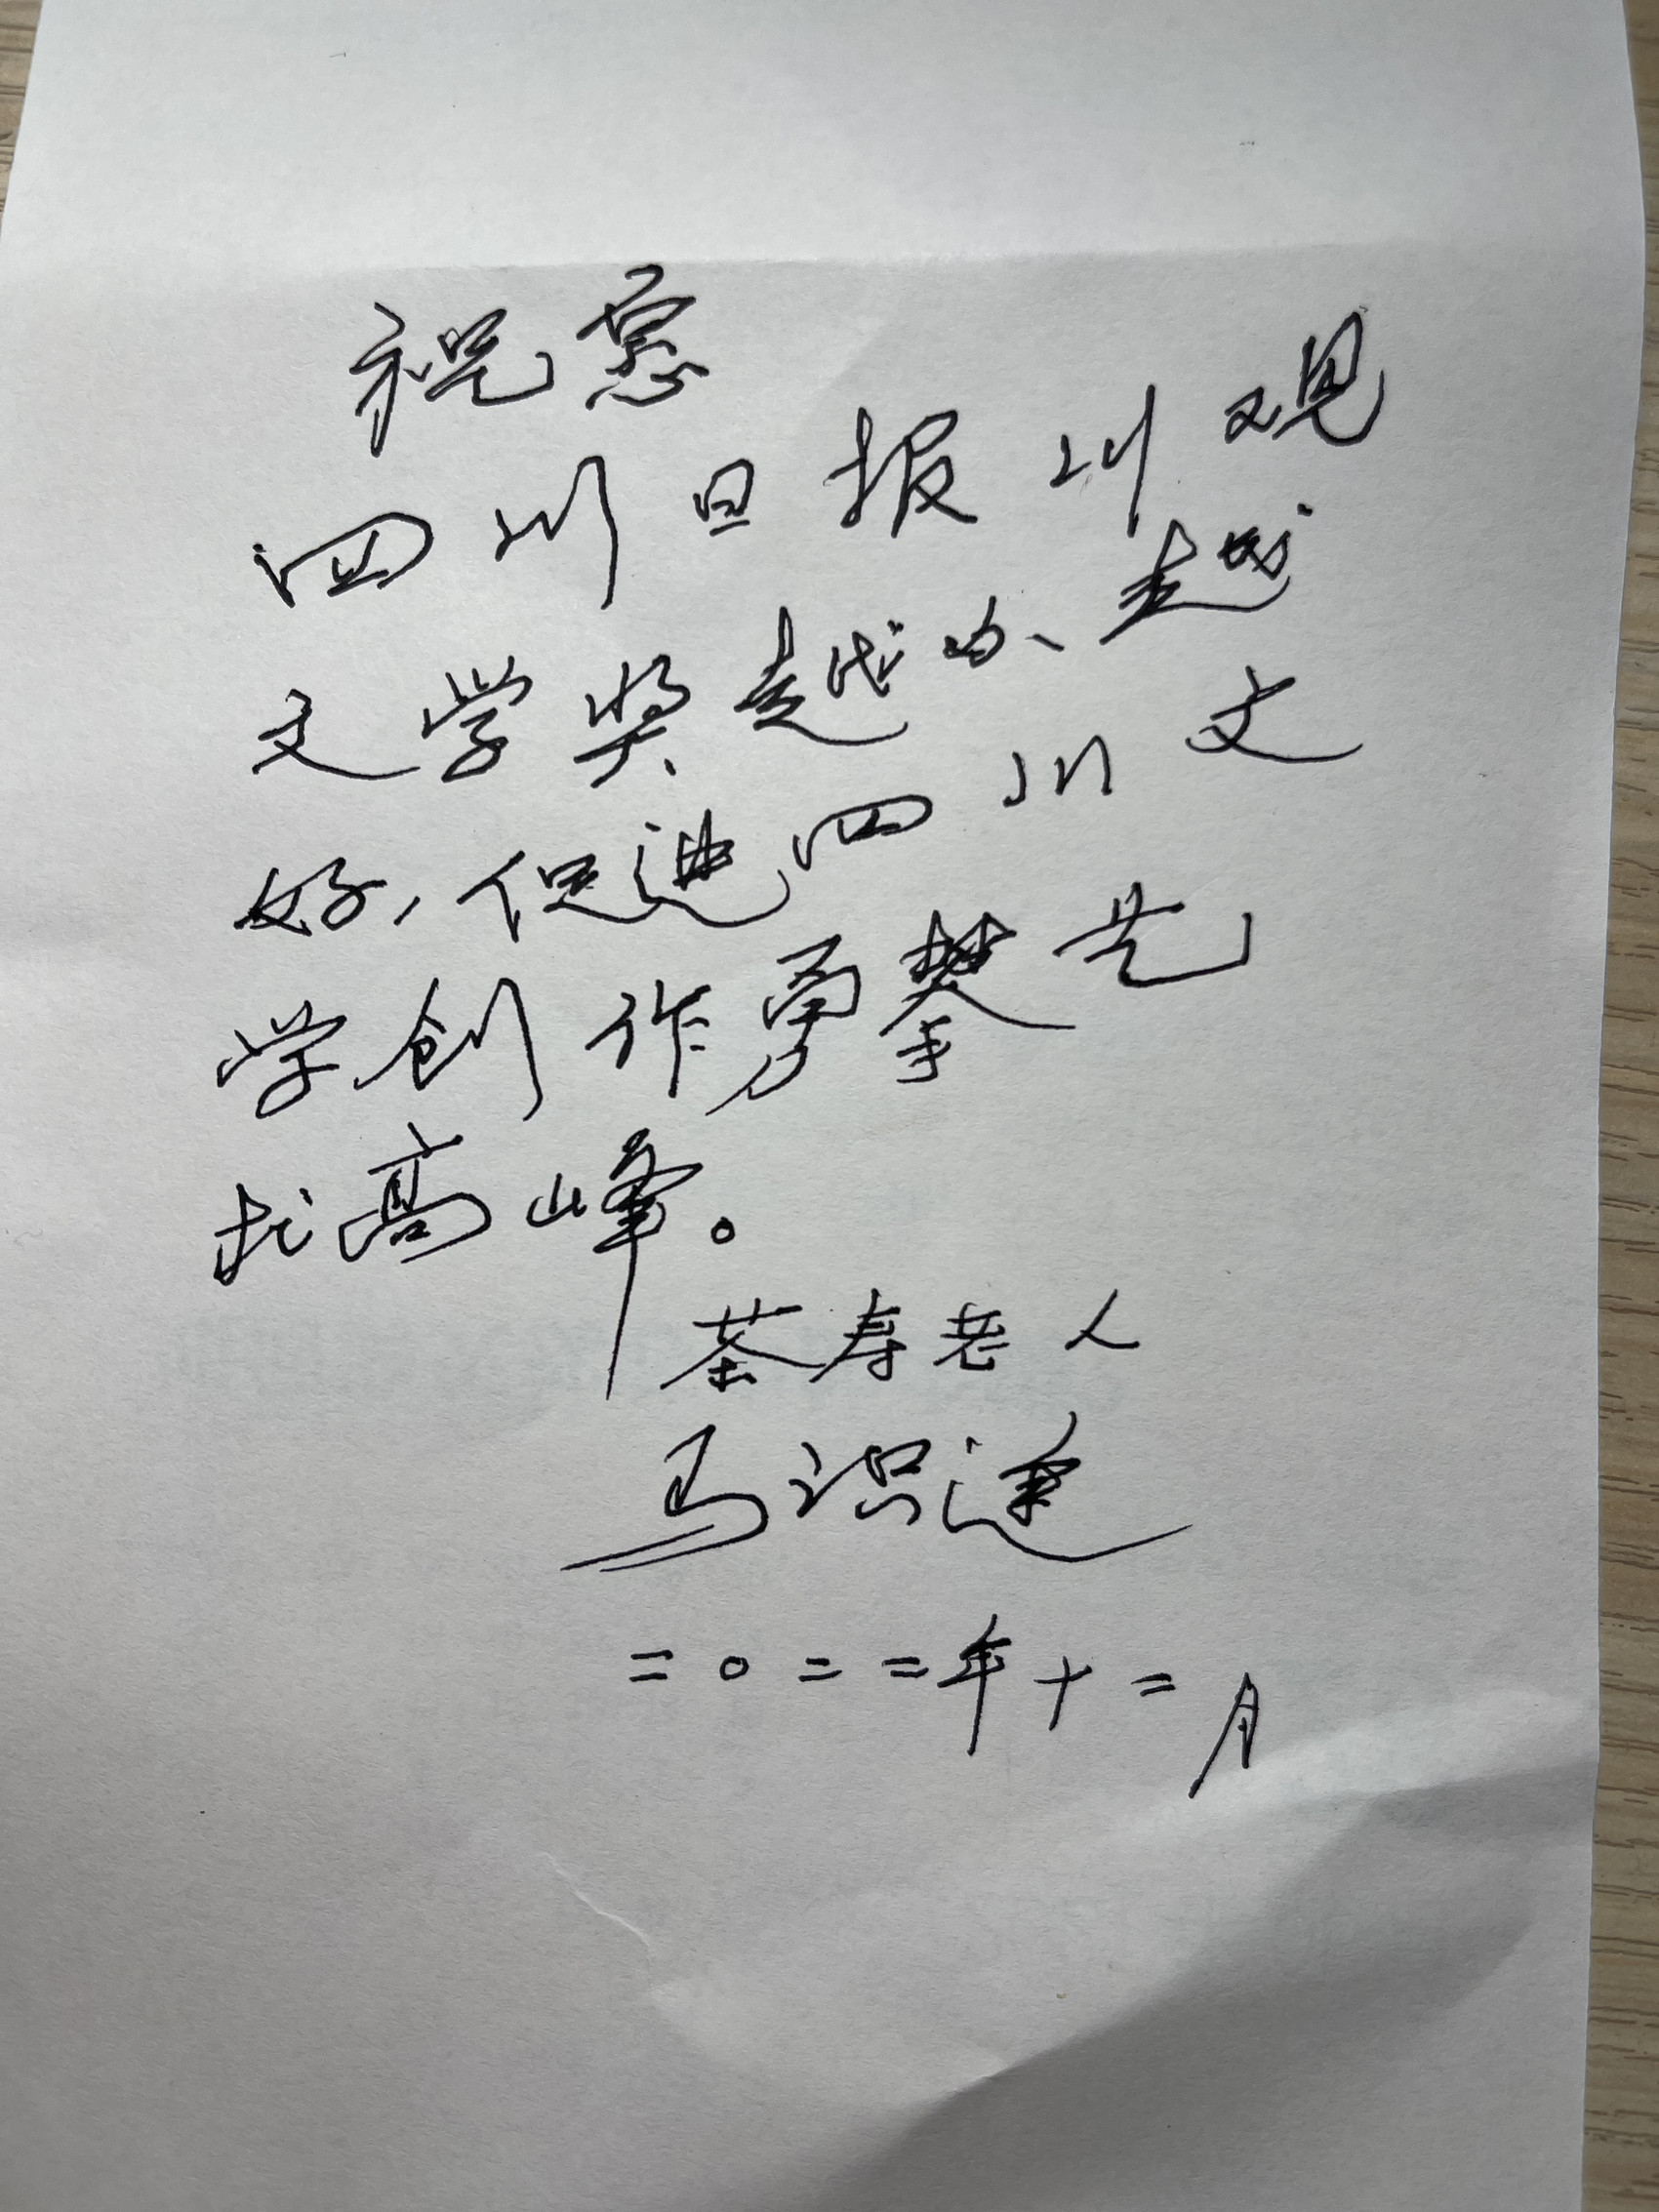 祝愿
四川日报川观
文学奖越办越
好，促进四川文
学创作勇攀艺
术高峰。
茶寿老人
马识途
二〇二二年十二月